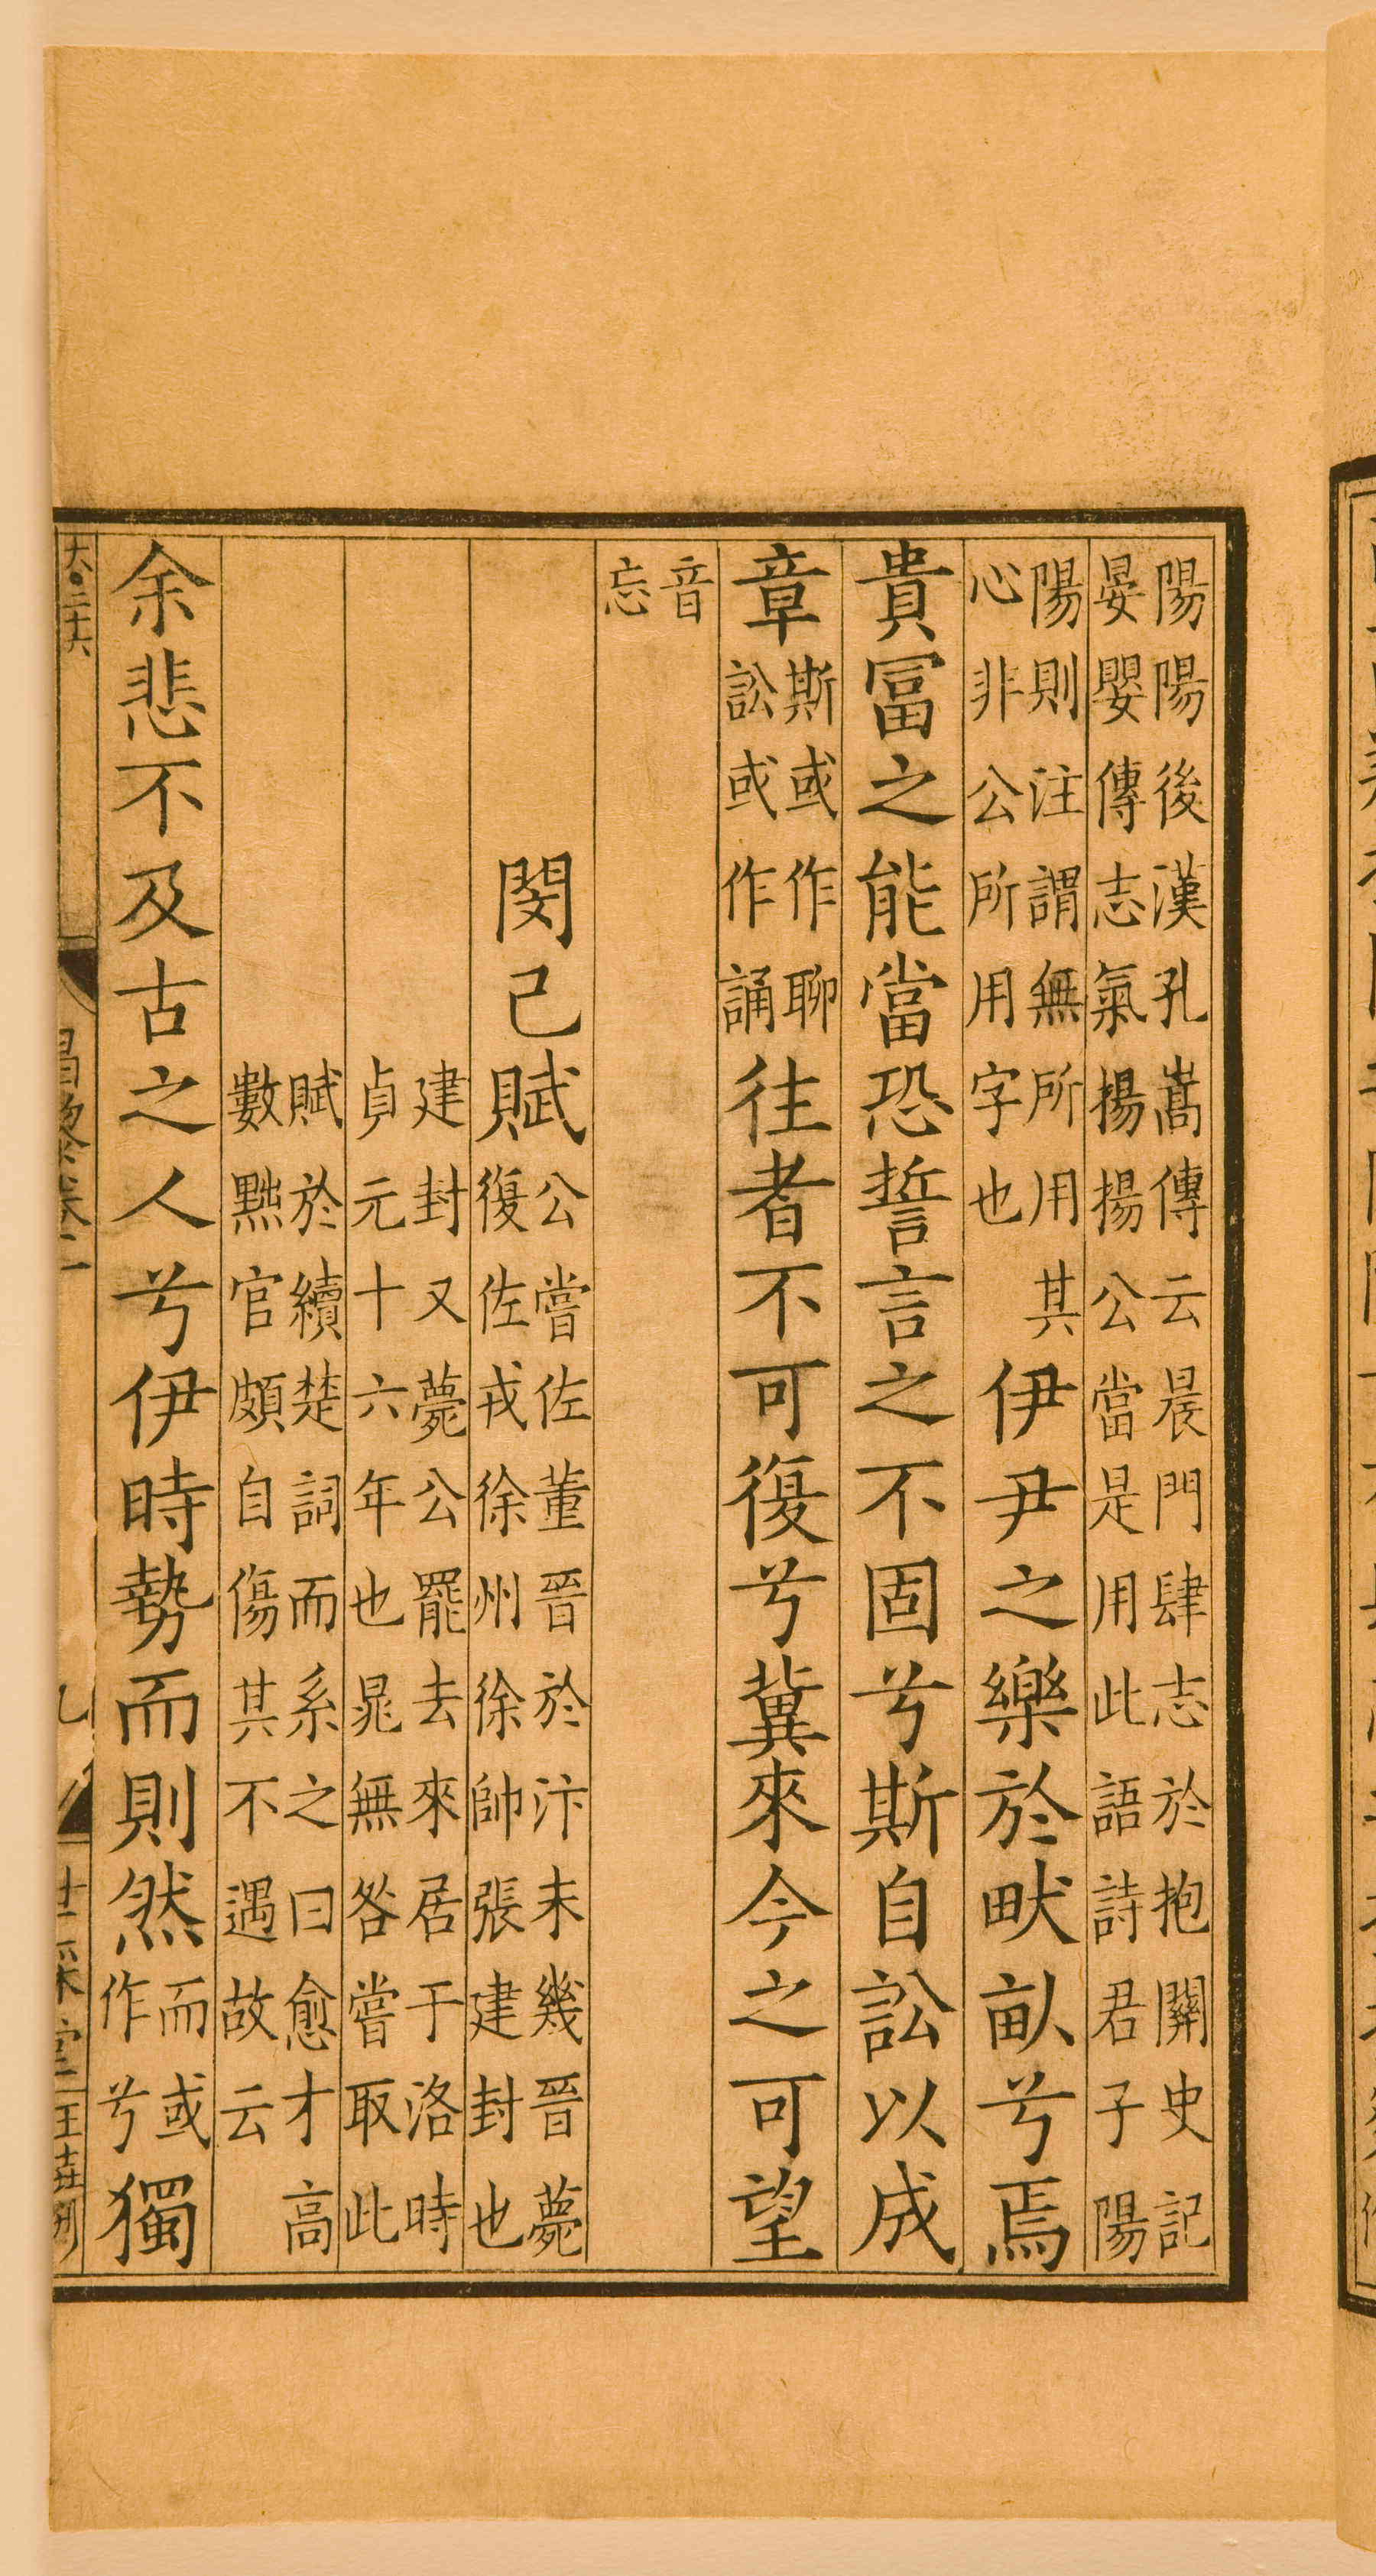 陽陽後漢孔嵩傳云晨門肆志於抱關史記
晏嬰傳志氣揚揚公當是用此語詩君子陽
陽則注謂無所用其
心非公所用字也
伊尹之樂於畎畝兮焉
貴冨之能當恐誓言之不固兮斯自訟以成
章
斯或作聊
訟或作誦
往者不可復兮冀來今之可望
音
忘
閔己賦
公嘗佐董晉於汴未幾晉薨
復佐戎徐州徐帥張建封也
建封又薨公罷去來居于洛時
貞元十六年也晁無咎嘗取此
賦於續楚詞而系之曰愈才高
數黜官頗自傷其不遇故云
余悲不及古之人兮伊時勢而則然
而或
作兮
獨